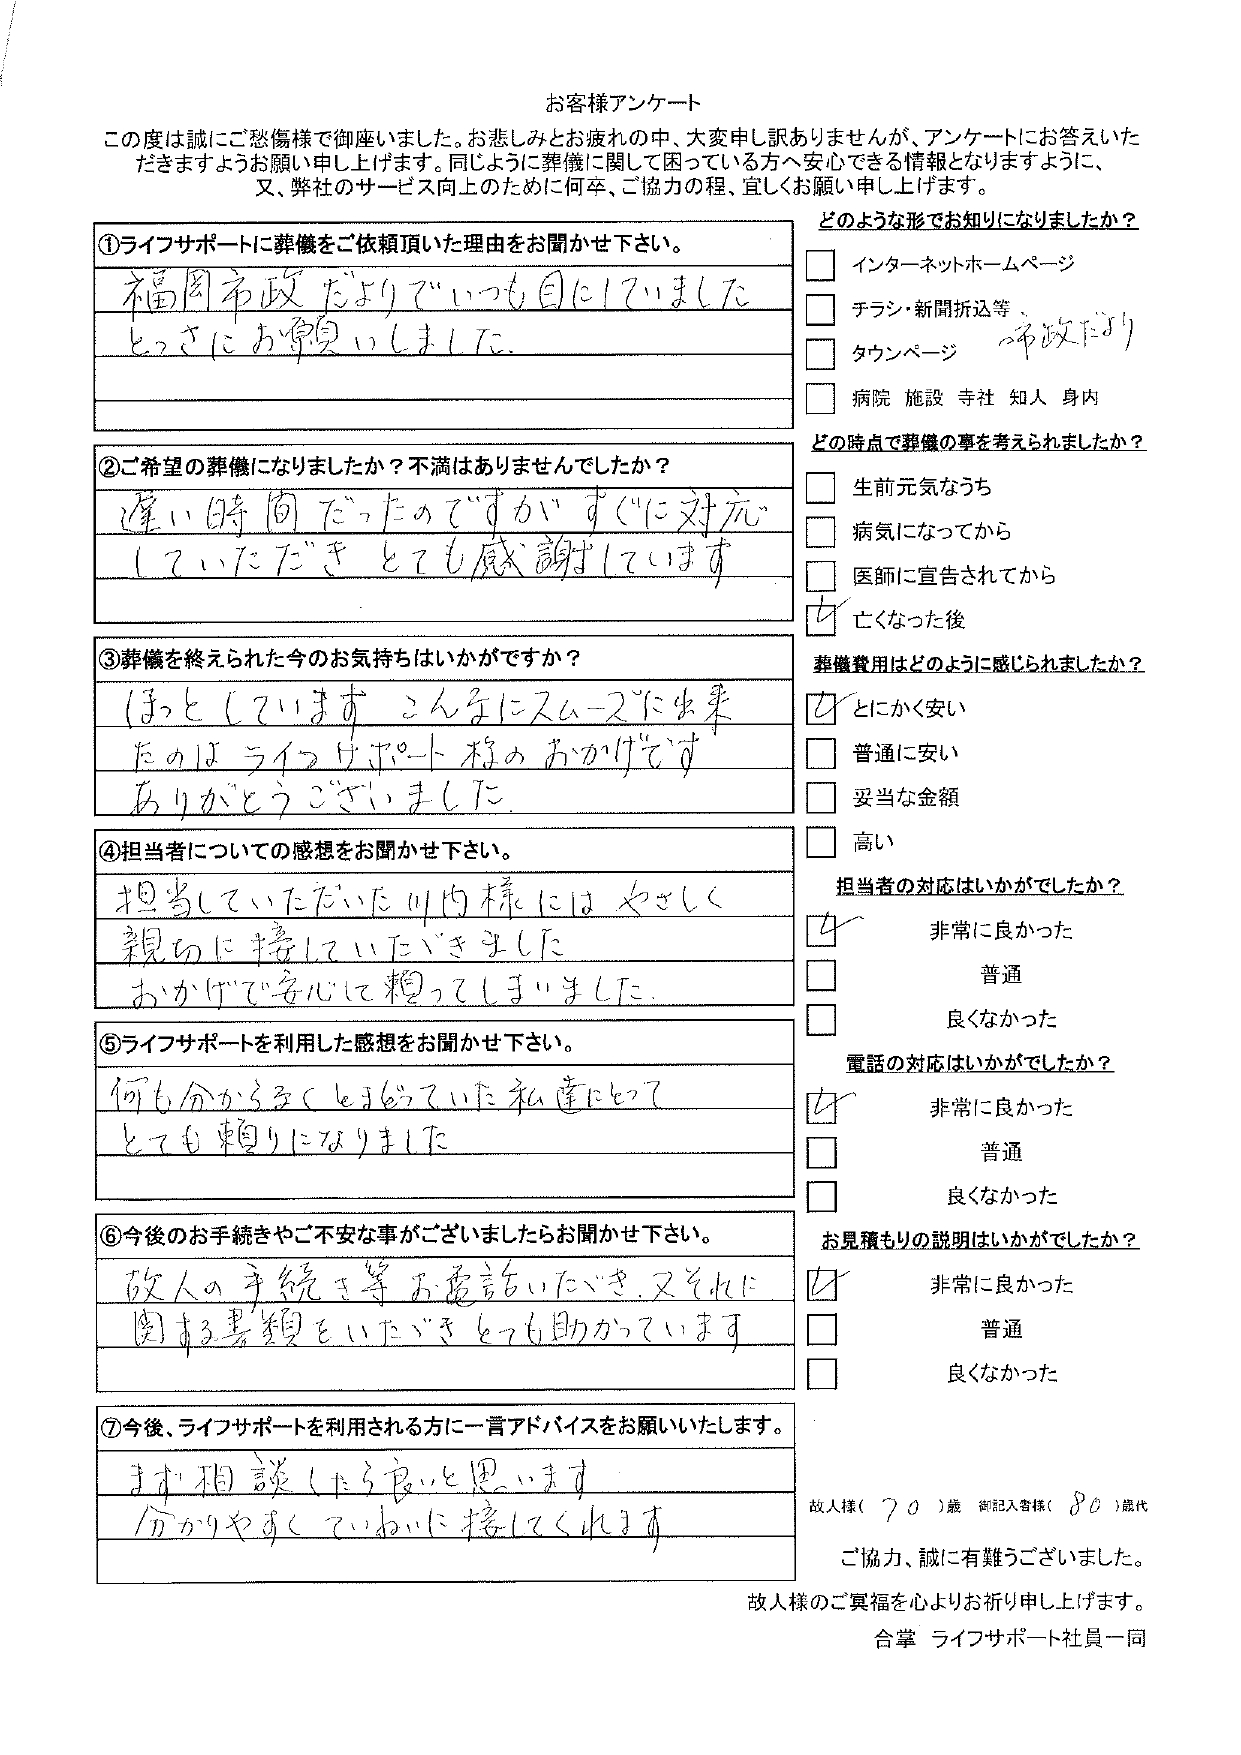 お客様アンケート
この度は誠にご愁傷様で御座いました。お悲しみとお疲れの中、大変申し訳ありませんが、アンケートにお答えいた
だきますようお願い申し上げます。同じように葬儀に関して困っている方へ安心できる情報となりますように、
又、弊社のサービス向上のために何卒、ご協力の程、宜しくお願い申し上げます。
①ライフサポートに葬儀をご依頼頂いた理由をお聞かせ下さい。
福岡市政だよりでいつも目にしていました
とっさにお願いしました.
②ご希望の葬儀になりましたか？不満はありませんでしたか？
遅い時間だったのですが すぐに対応
していただき とても感謝しています
③葬儀を終えられた今のお気持ちはいかがですか？
ほっとしています こんなにスムーズに出来
たのは ライフサポート様の おかげです
ありがとうございました.
④担当者についての感想をお聞かせ下さい。
担当していただいた川内様には やさしく
親切に接していたゞきました
おかげで安心して頼ってしまいました.
⑤ライフサポートを利用した感想をお聞かせ下さい。
何も分からなくとまどっていた私達にとって
とても頼りになりました
⑥今後のお手続きやご不安な事がございましたらお聞かせ下さい。
故人の手続き等お電話いたゞき.又それに
関する書類をいたゞきとても助かっています
⑦今後、ライフサポートを利用される方に一言アドバイスをお願いいたします。
まず相談したら良いと思います
分かりやすくていねいに接してくれます
どのような形でお知りになりましたか？
インターネットホームページ
チラシ・新聞折込等
市政だより
タウンページ
病院 施設 寺社 知人 身内
どの時点で葬儀の事を考えられましたか？
生前元気なうち
病気になってから
医師に宣告されてから
亡くなった後
葬儀費用はどのように感じられましたか？
とにかく安い
普通に安い
妥当な金額
高い
担当者の対応はいかがでしたか？
非常に良かった
普通
良くなかった
電話の対応はいかがでしたか？
非常に良かった
普通
良くなかった
お見積もりの説明はいかがでしたか？
非常に良かった
普通
良くなかった
故人様( 70 )歳 御記入者様( 80 )歳代
ご協力、誠に有難うございました。
故人様のご冥福を心よりお祈り申し上げます。
合掌 ライフサポート社員一同